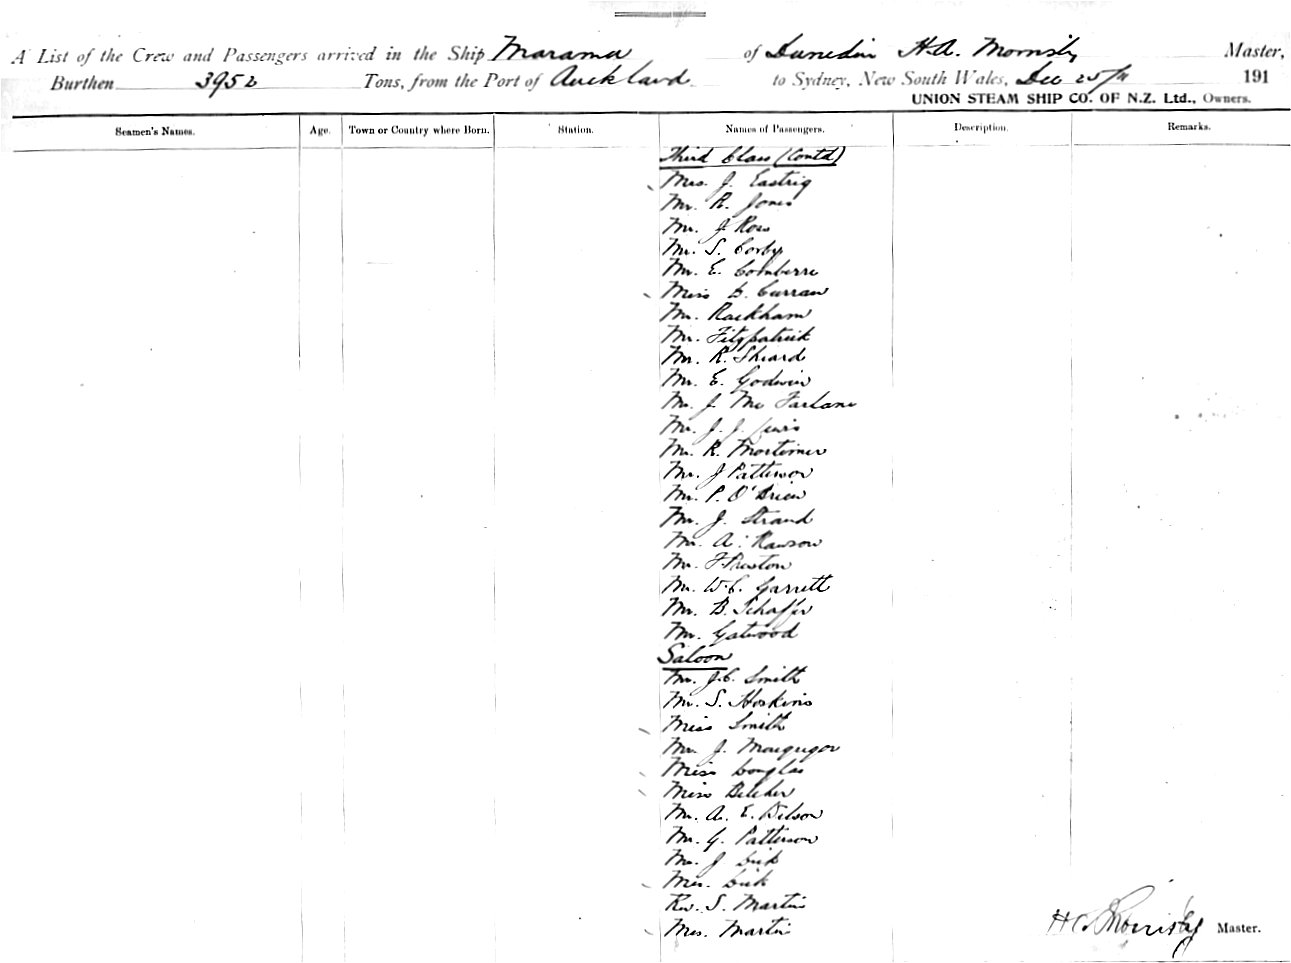 A List of the Crew and Passengers arrived in the Ship Marama of Dunedin H.A. Mornisby Master,
Burthen 3952 Tons, from the Port of Auckland to Sydney, New South Wales, Dec 25/11 191
UNION STEAM SHIP CO. OF N.Z. Ltd., Owners.
Seamen's Names. Age. Town or Country where Born. Station. Names of Passengers. Description. Remarks.
Third Class (Contd)
Mrs. J. Eastrig
Mr. R. Jones
Mr. J Ross
Mr. S. Corby
Mr. E. Comberre
Miss B. Curran
Mr. Rackham
Mr. Fitzpatrick
Mr. R. Sheard
Mr. E. Godwin
Mr. J. Mc Farlane
Mr. J. J. Lewis
Mr. R. Mortimer
Mr. J Patterson
Mr. P. O'Brien
Mr. J. Strand
Mr. A. Rawson
Mr. F Preston
Mr. W.C. Garrett
Mr. B. Schaffer
Mr. Gatwood
Saloon
Mr. J.C. Smith
Mr. S. Hoskins
Miss Smith
Mr. J. Macgregor
Miss Douglas
Miss Belcher
Mr. A. E. Bilson
Mr. G. Patterson
Mr. J Dick
Mrs. Dick
Rev. S. Martin
Mrs. Martin
Master.